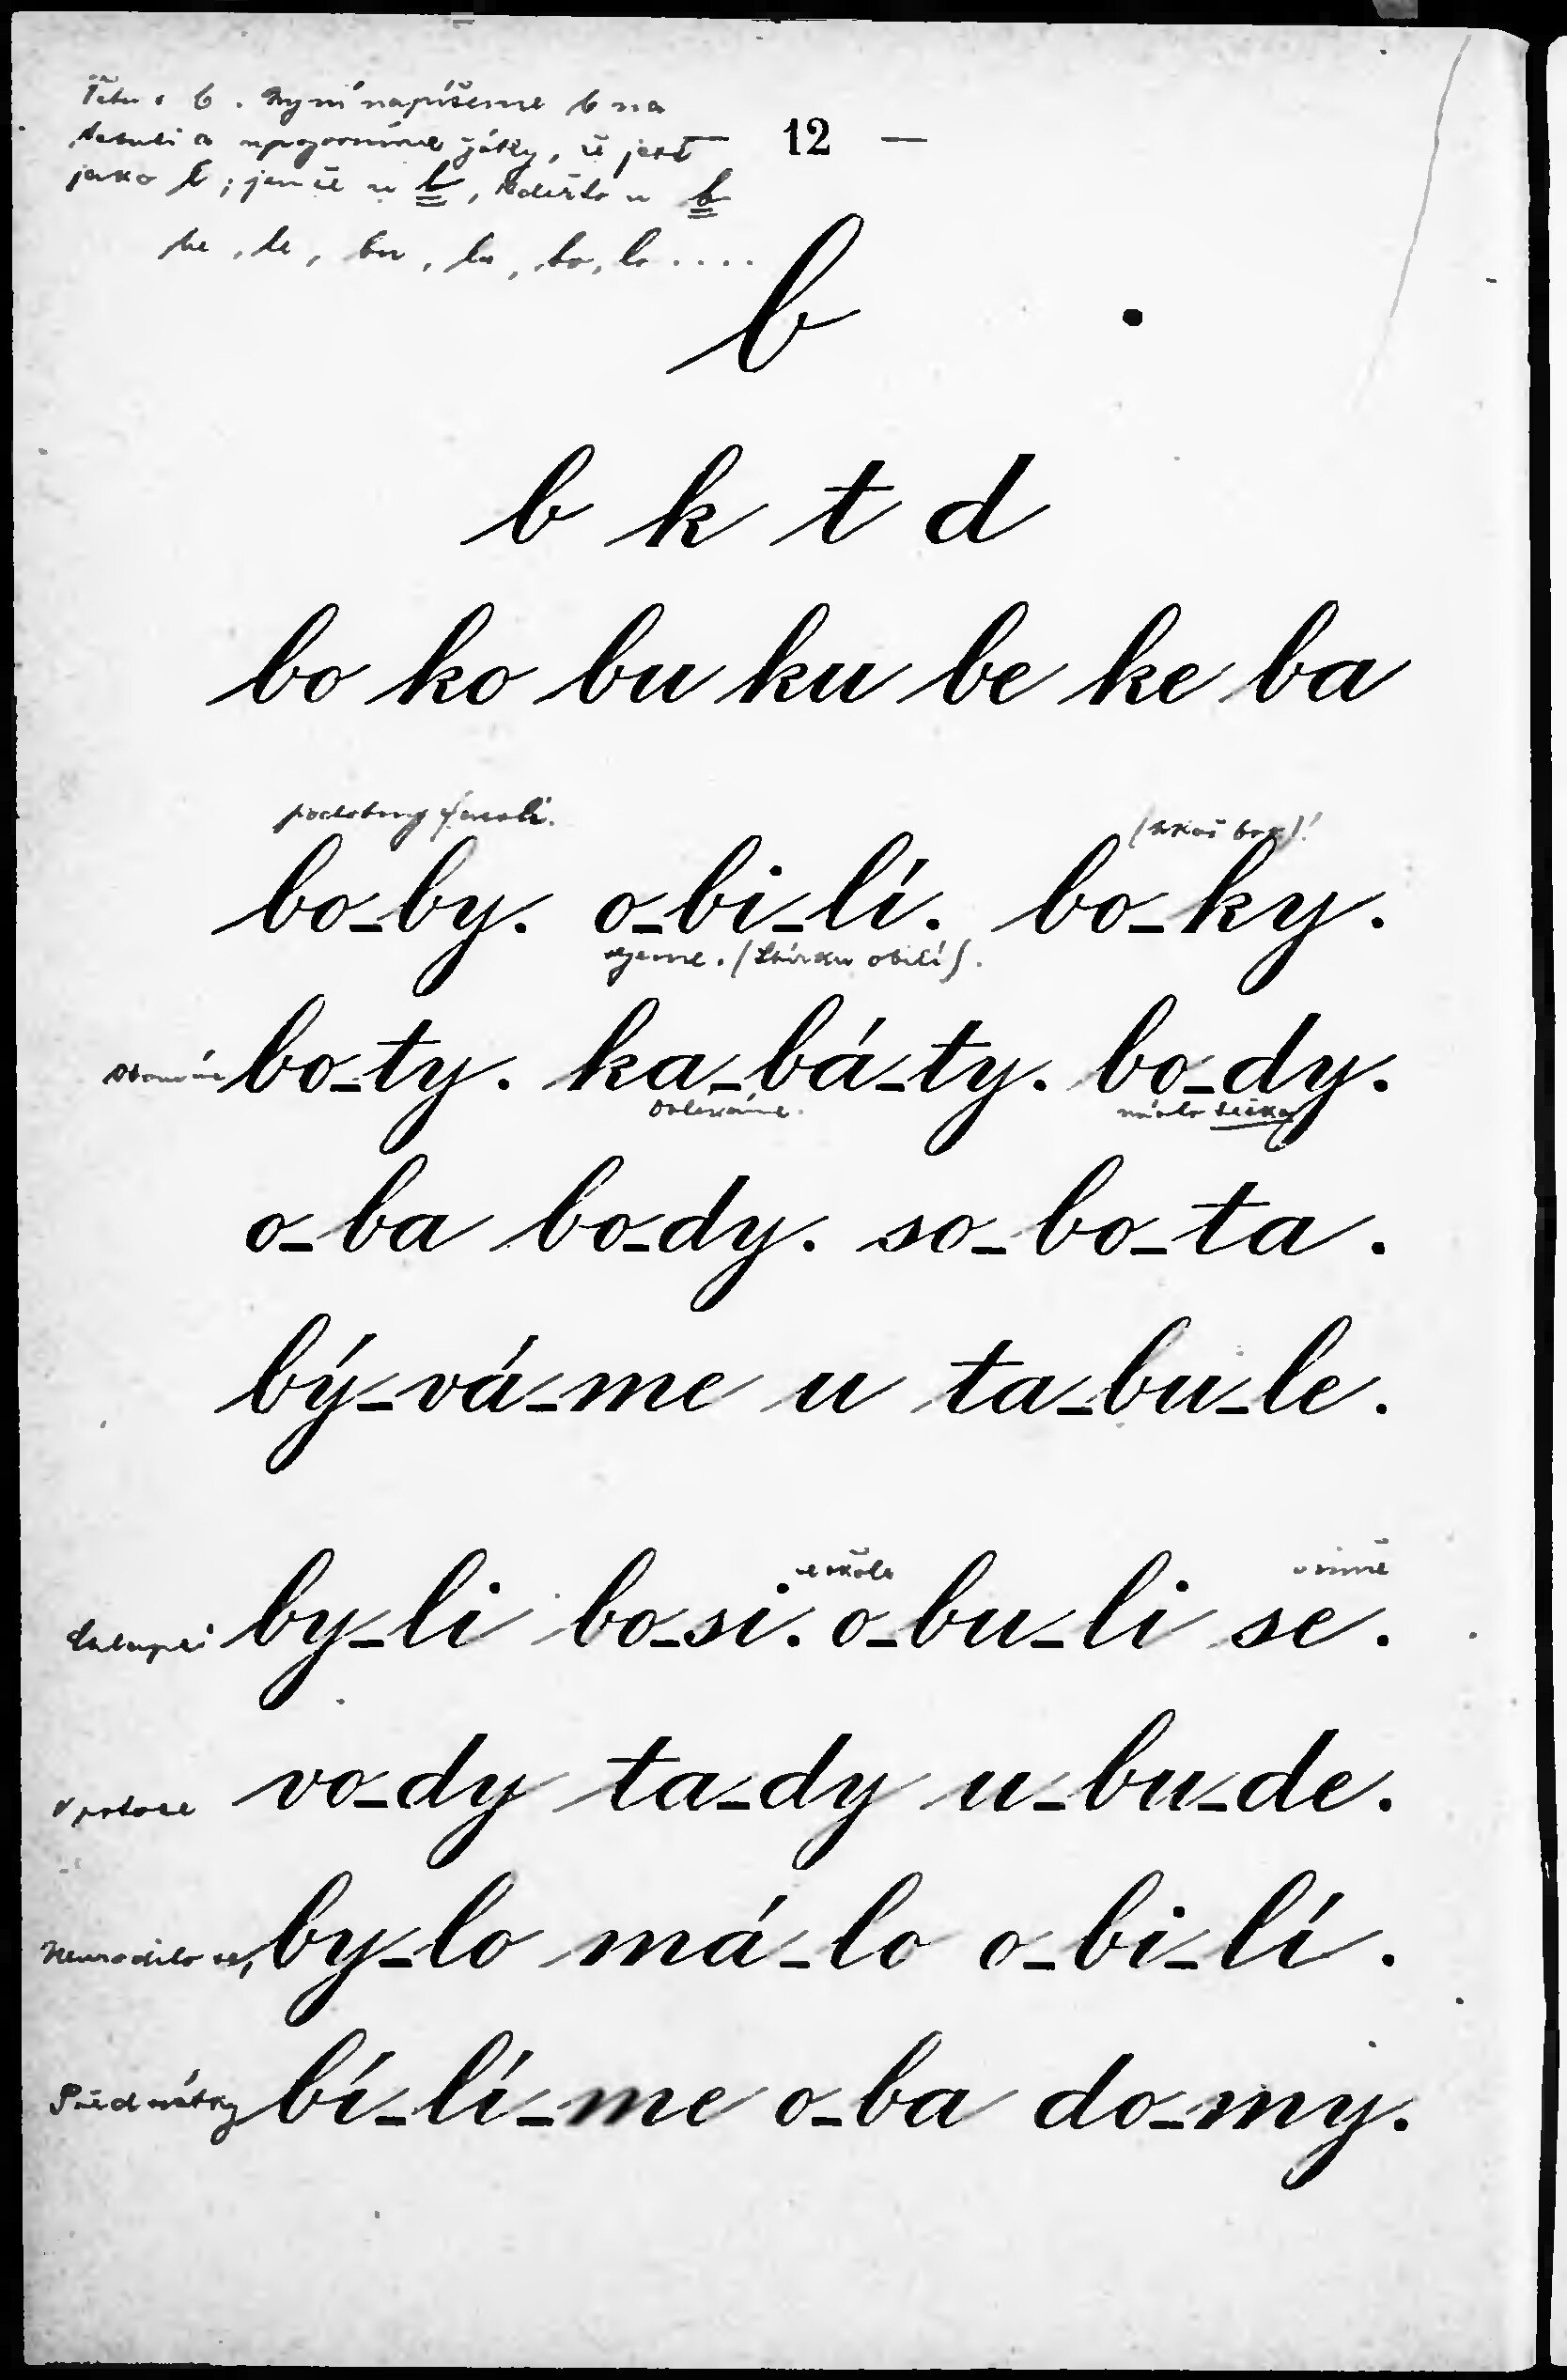 b . Nyní napíšeme b na
tabuli a upozorníme žáky, že jest
— 12 —
jako l ; jenže u l, kdežto u b
be , le , bu , lu , bo, lo . . . .
b
b k t d
bo ko bu ku be ke ba
podobný fasoli.
(ukaž bok)!
bo-by. o-bi-lí. bo-ky.
sejeme. (Sbírku obilí).
bo-ty. ka-bá-ty. bo-dy.
Oblékáme.
tečka
o-ba bo-dy. so-bo-ta .
bý-vá-me u ta-bu-le .
ve škole
v zimě
by-li bo-si. o-bu-li se .
V potoce vo-dy ta-dy u-bu-de.
Neurodilo se, by-lo má-lo o-bi-lí .
Před svátky bí-lí-me o-ba do-my.